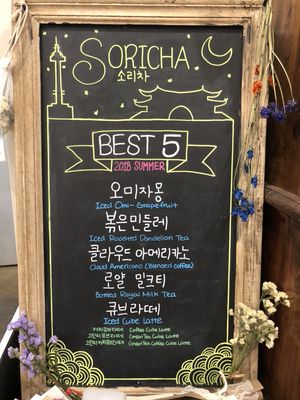 SORICHA
소리차
BEST 5
2018 SUMMER
오미자몽
Iced Omi-Grapefruit
볶은민들레
Iced Roasted Dandelion Tea
클라우드 아메리카노
Cloud Americano (Blended coffee)
로얄 밀크티
Bottled Royal Milk Tea
큐브라떼
Iced Cube Latte
커피큐브라떼 Coffee Cube Latte
그린티큐브라떼 GreenTea Cube Latte
그린티커피큐브라떼 GreenTea Coffee Cube Latte